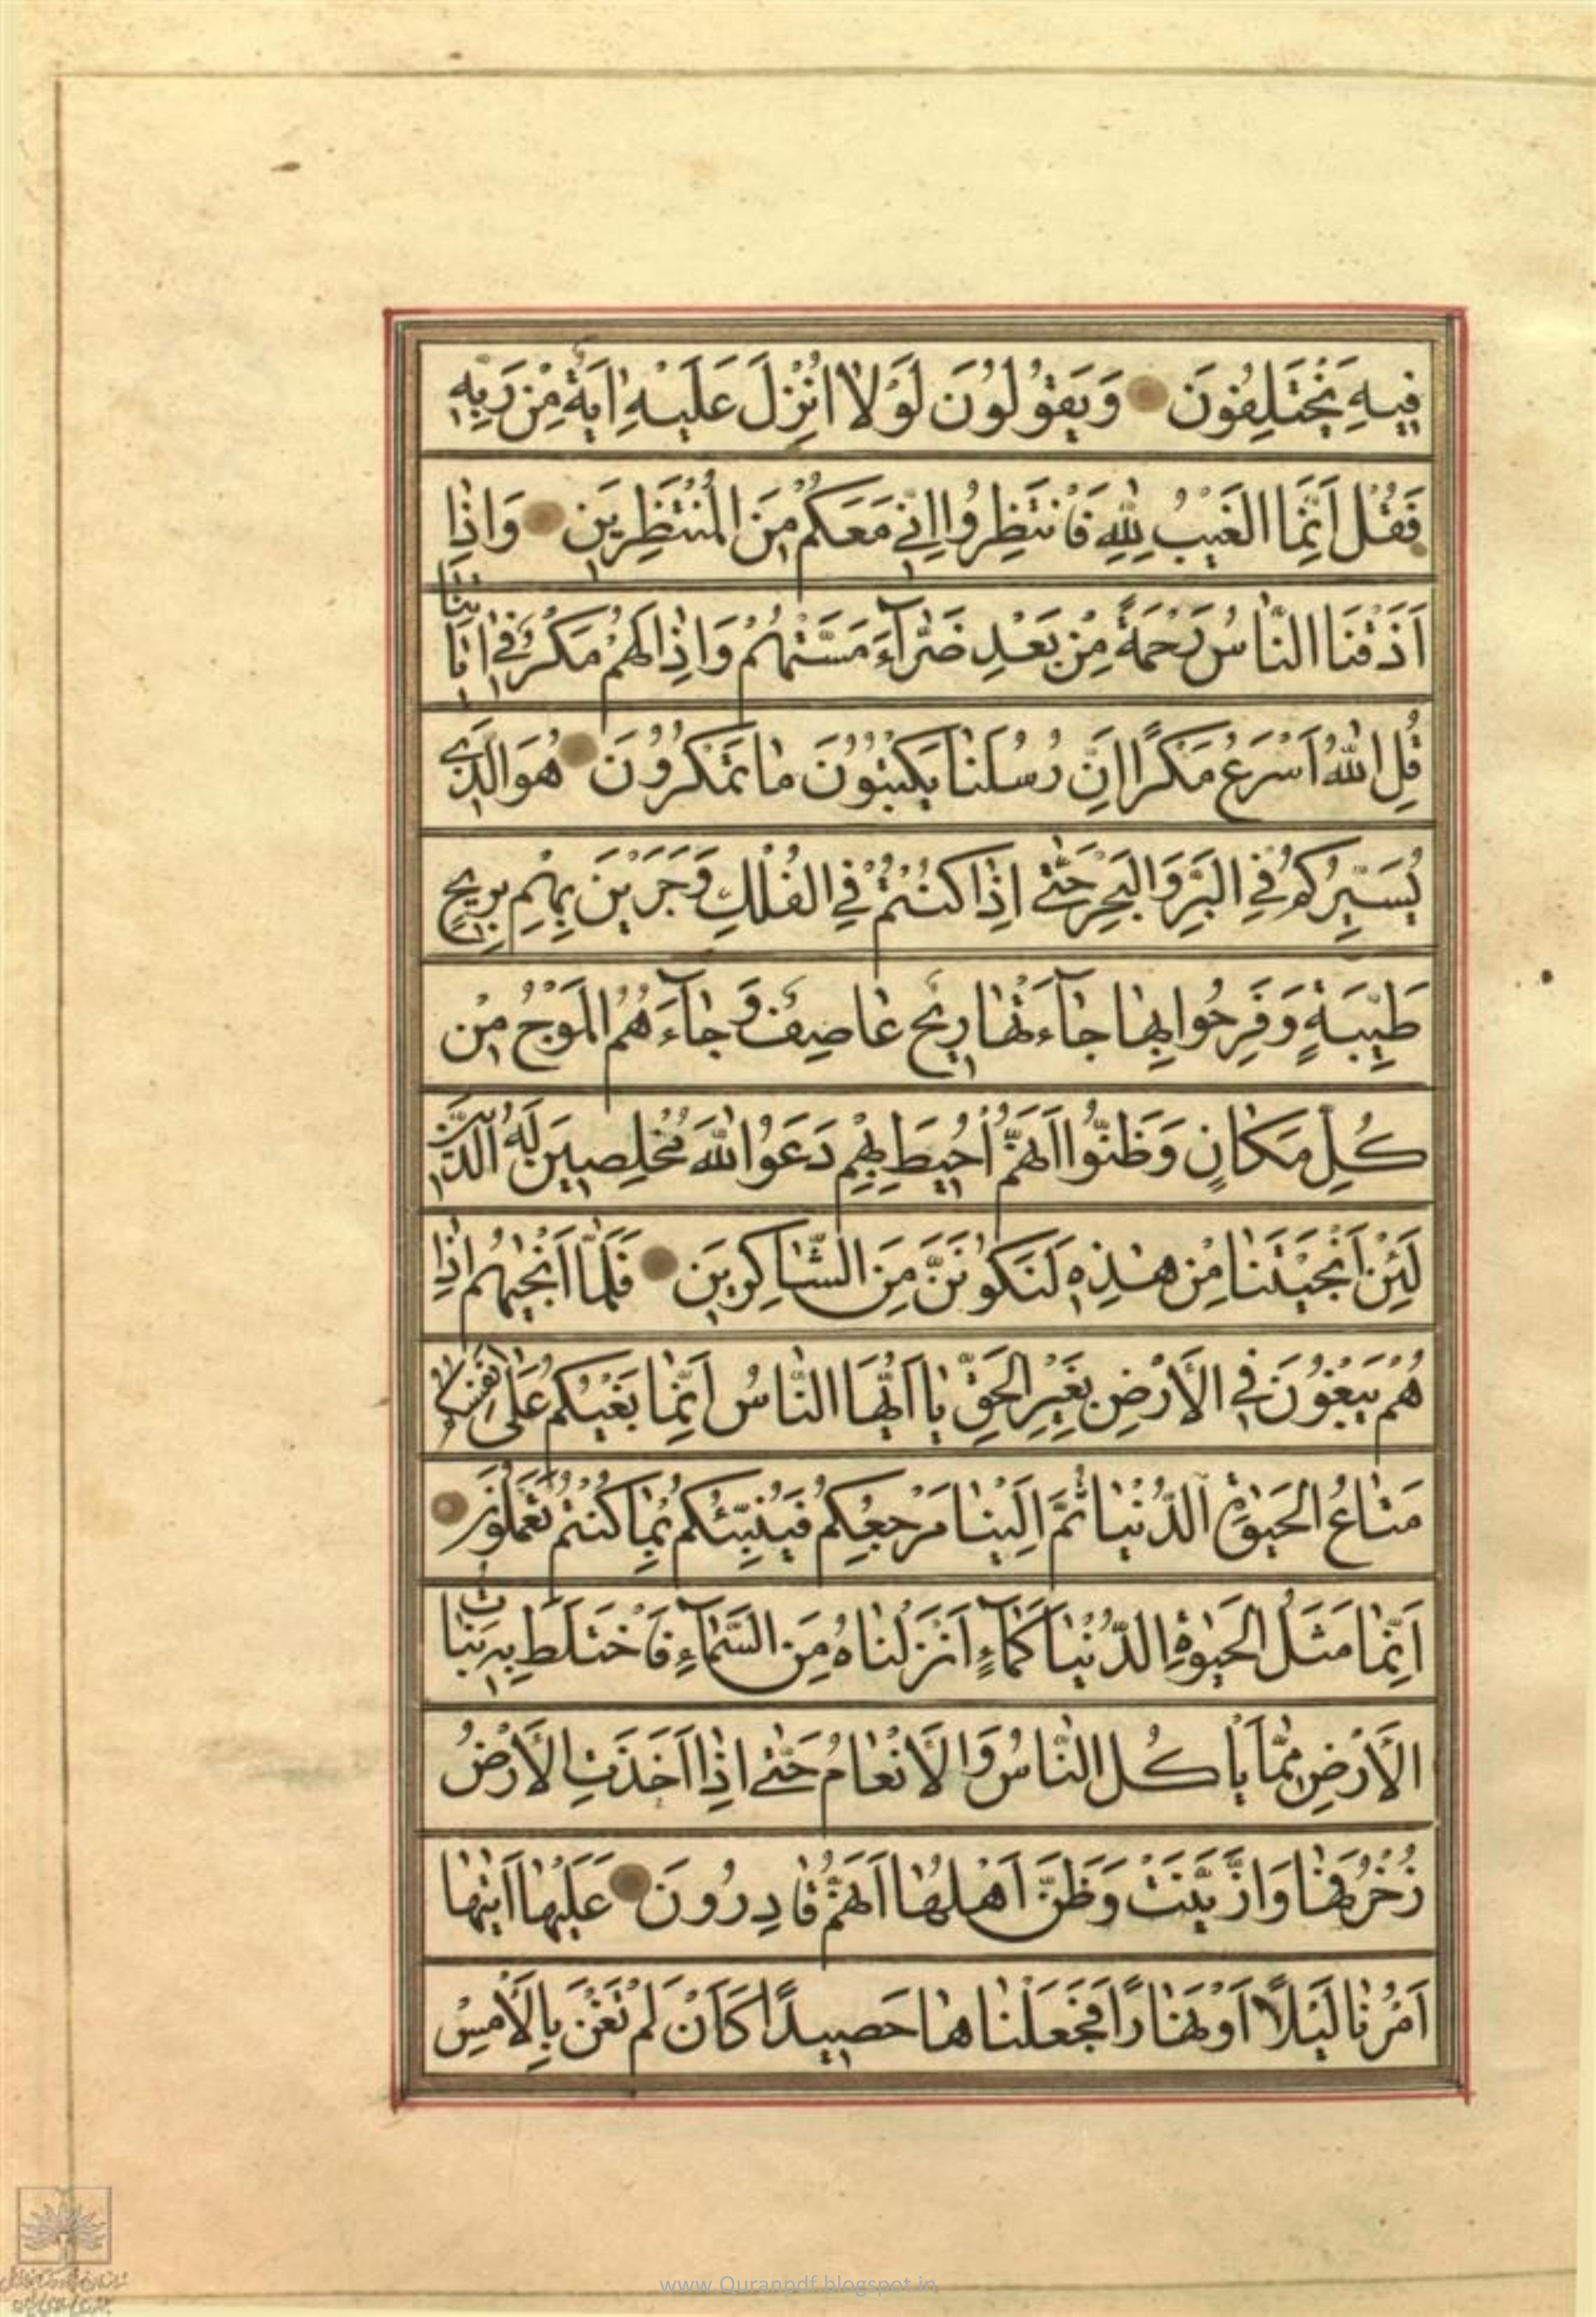 فِيهِ يَخْتَلِفُونَ وَيَقُولُونَ لَوْلَا اُنْزِلَ عَلَيْهِ اٰيَةٌ مِنْ رَبِّهِ
فَقُلْ اِنَّمَا الْغَيْبُ لِلّٰهِ فَانْتَظِرُوا اِنِّي مَعَكُمْ مِنَ الْمُنْتَظِرِينَ وَاِذَا
اَذَقْنَا النَّاسَ رَحْمَةً مِنْ بَعْدِ ضَرَّآءَ مَسَّتْهُمْ وَاِذَا لَهُمْ مَكْرٌ فِي اٰيَاتِنَا
قُلِ اللّٰهُ اَسْرَعُ مَكْرًا اِنَّ رُسُلَنَا يَكْتُبُونَ مَا تَمْكُرُونَ هُوَ الَّذِي
يُسَيِّرُكُمْ فِي الْبَرِّ وَالْبَحْرِ حَتّٰى اِذَا كُنْتُمْ فِي الْفُلْكِ وَجَرَيْنَ بِهِمْ بِرِيحٍ
طَيِّبَةٍ وَفَرِحُوا بِهَا جَآءَتْهَا رِيحٌ عَاصِفٌ وَجَآءَهُمُ الْمَوْجُ مِنْ
كُلِّ مَكَانٍ وَظَنُّوا اَنَّهُمْ اُحِيطَ بِهِمْ دَعَوُا اللّٰهَ مُخْلِصِينَ لَهُ الدِّينَ
لَئِنْ اَنْجَيْتَنَا مِنْ هٰذِهِ لَنَكُونَنَّ مِنَ الشَّاكِرِينَ فَلَمَّا اَنْجٰيهُمْ اِذَا
هُمْ يَبْغُونَ فِي الْاَرْضِ بِغَيْرِ الْحَقِّ يَا اَيُّهَا النَّاسُ اِنَّمَا بَغْيُكُمْ عَلٰى اَنْفُسِكُمْ
مَتَاعُ الْحَيٰوةِ الدُّنْيَا ثُمَّ اِلَيْنَا مَرْجِعُكُمْ فَنُنَبِّئُكُمْ بِمَا كُنْتُمْ تَعْمَلُونَ
اِنَّمَا مَثَلُ الْحَيٰوةِ الدُّنْيَا كَمَآءٍ اَنْزَلْنَاهُ مِنَ السَّمَآءِ فَاخْتَلَطَ بِهِ نَبَاتُ
الْاَرْضِ مِمَّا يَاْكُلُ النَّاسُ وَالْاَنْعَامُ حَتّٰى اِذَا اَخَذَتِ الْاَرْضُ
زُخْرُفَهَا وَازَّيَّنَتْ وَظَنَّ اَهْلُهَا اَنَّهُمْ قَادِرُونَ عَلَيْهَا اَتٰيهَا
اَمْرُنَا لَيْلًا اَوْ نَهَارًا فَجَعَلْنَاهَا حَصِيدًا كَاَنْ لَمْ تَغْنَ بِالْاَمْسِ
www.Quranpdf.blogspot.in